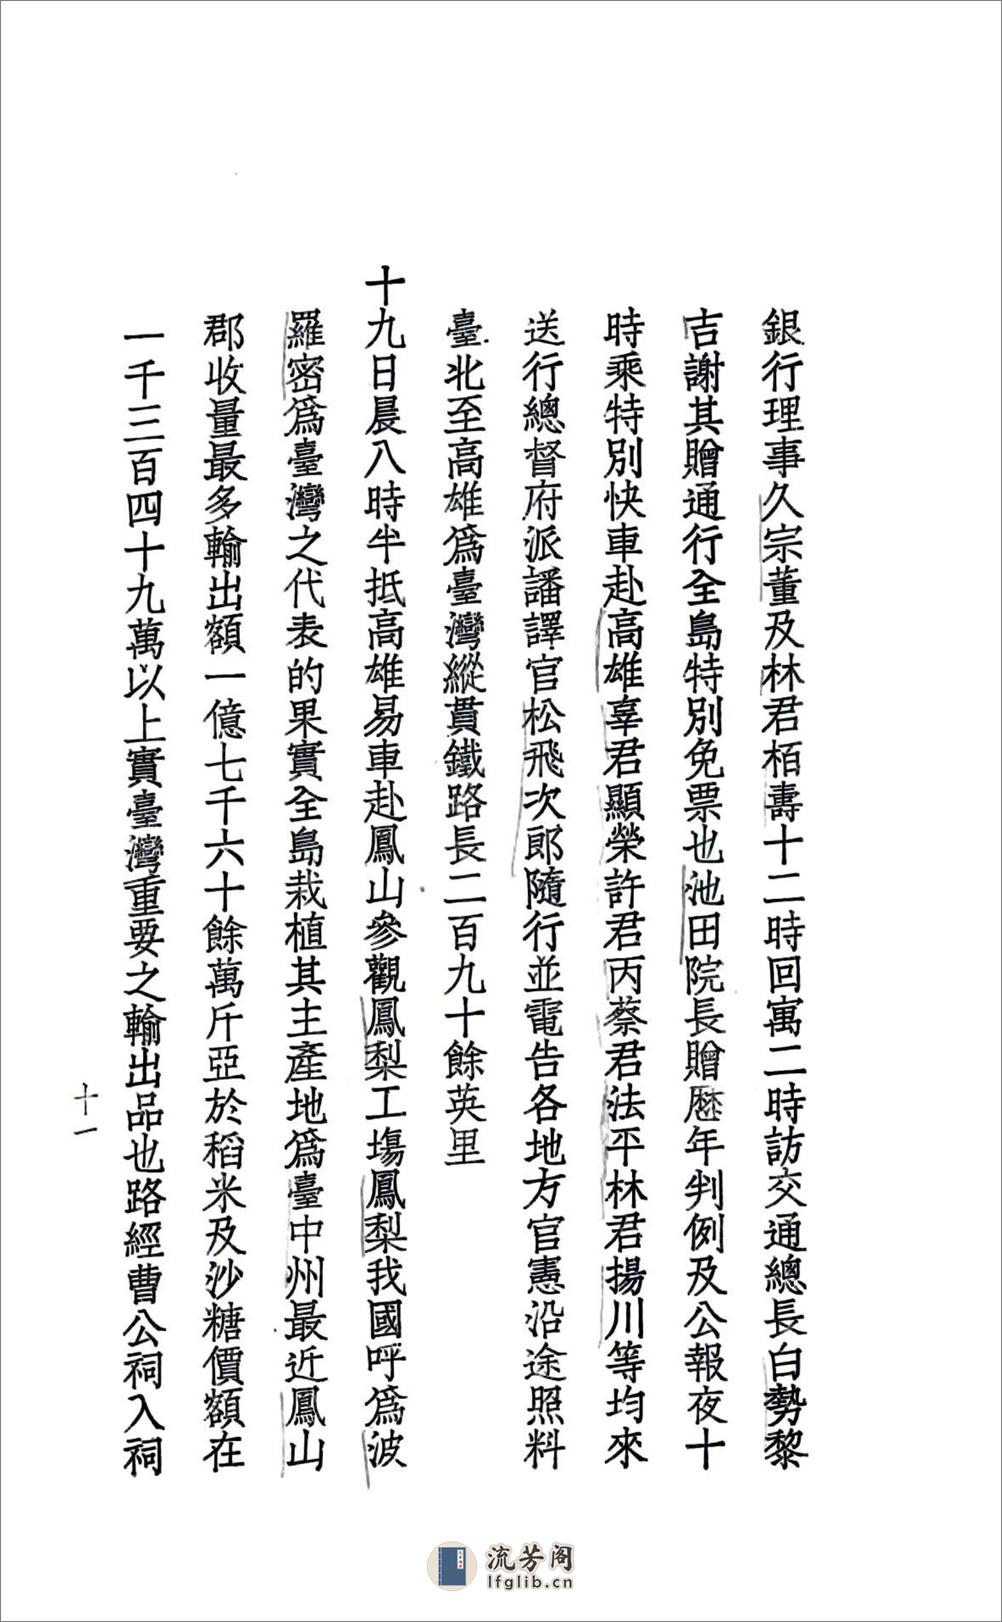 銀行理事久宗董及林君栢壽十二時回寓二時訪交通總長白勢黎
吉謝其贈通行全島特別免票也池田院長贈歷年判例及公報夜十
時乘特別快車赴高雄辜君顯榮許君丙蔡君法平林君揚川等均來
送行總督府派譒譯官松飛次郎隨行並電告各地方官憲沿途照料
臺北至高雄爲臺灣縱貫鐵路長二百九十餘英里
十九日晨八時半抵高雄易車赴鳳山參觀鳳梨工塲鳳梨我國呼爲波
羅密爲臺灣之代表的果實全島栽植其主產地爲臺中州最近鳳山
郡收量最多輸出額一億七千六十餘萬斤亞於稻米及沙糖價額在
一千三百四十九萬以上實臺灣重要之輸出品也路經曹公祠入祠
十一
流芳阁
lfglib.cn